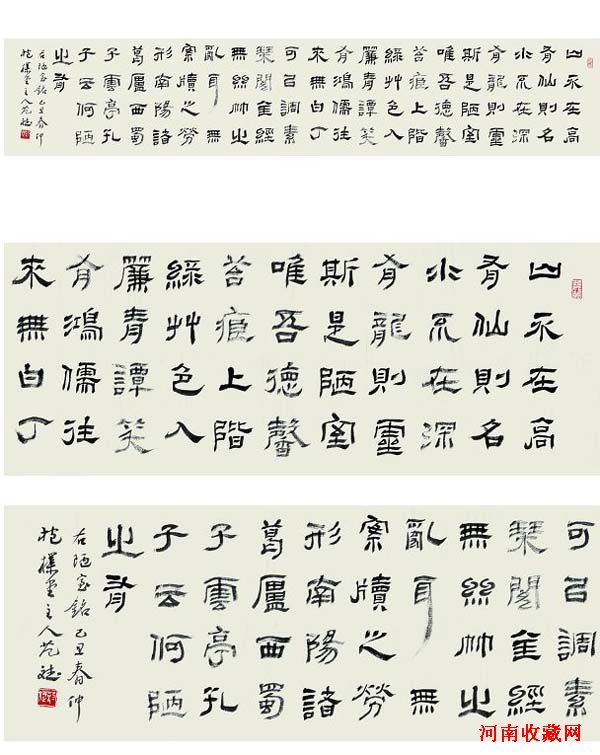 山不在高
有仙則名
水不在深
有龍則靈
斯是陋室
唯吾德馨
苔痕上階
綠艸色入
簾青譚笑
有鴻儒往
來無白丁
可㠯調素
琴閱金經
無絲竹之
亂耳無
案牘之勞
形南陽諸
葛廬西蜀
子雲亭孔
子云何陋
之有
右陋室銘己丑春仲
抱樸堂主人
山不在高
有仙則名
水不在深
有龍則靈
斯是陋室
唯吾德馨
苔痕上階
綠艸色入
簾青譚笑
有鴻儒往
來無白丁
可㠯調素
琴閱金經
無絲竹之
亂耳無
案牘之勞
形南陽諸
葛廬西蜀
子雲亭孔
子云何陋
之有
右陋室銘己丑春仲
抱樸堂主人
河南收藏网